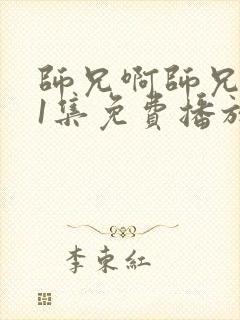 師兄啊師兄
1集免費播放
李東紅